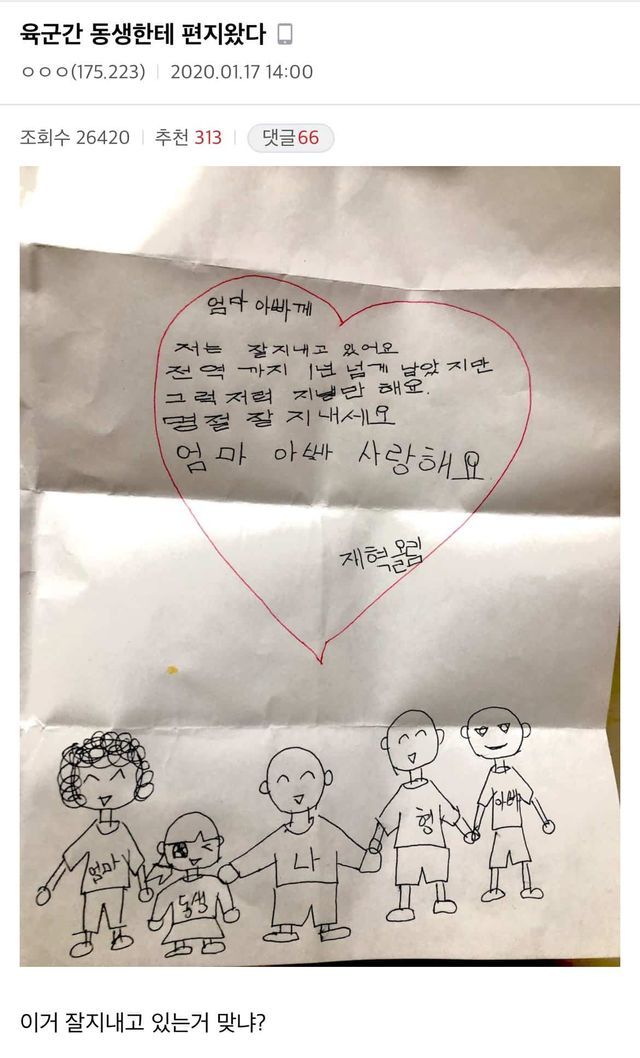 육군간 동생한테 편지왔다
ㅇㅇㅇ(175.223) 2020.01.17 14:00
조회수 26420 추천 313 댓글66
엄마 아빠께
저는 잘지내고 있어요
전역 까지 1년 넘게 남았지만
그럭저럭 지낼만 해요.
명절 잘 지내세요
엄마 아빠 사랑해요
재혁 올림
엄마 동생 나 형 아빠
이거 잘지내고 있는거 맞냐?